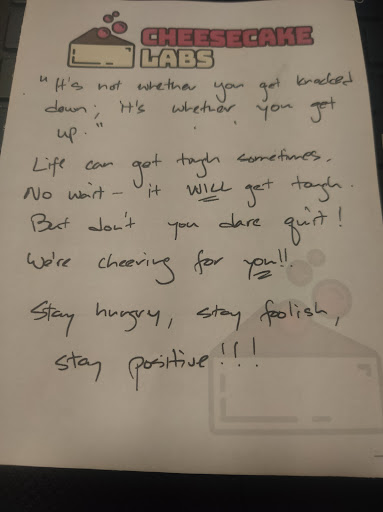 CHEESECAKE
LABS
"It's not whether you get knocked
down; it's whether you get
up."
Life can get tough sometimes.
No wait - it WILL get tough.
But don't you dare quit!
We're cheering for you!!
Stay hungry, stay foolish,
stay positive!!!